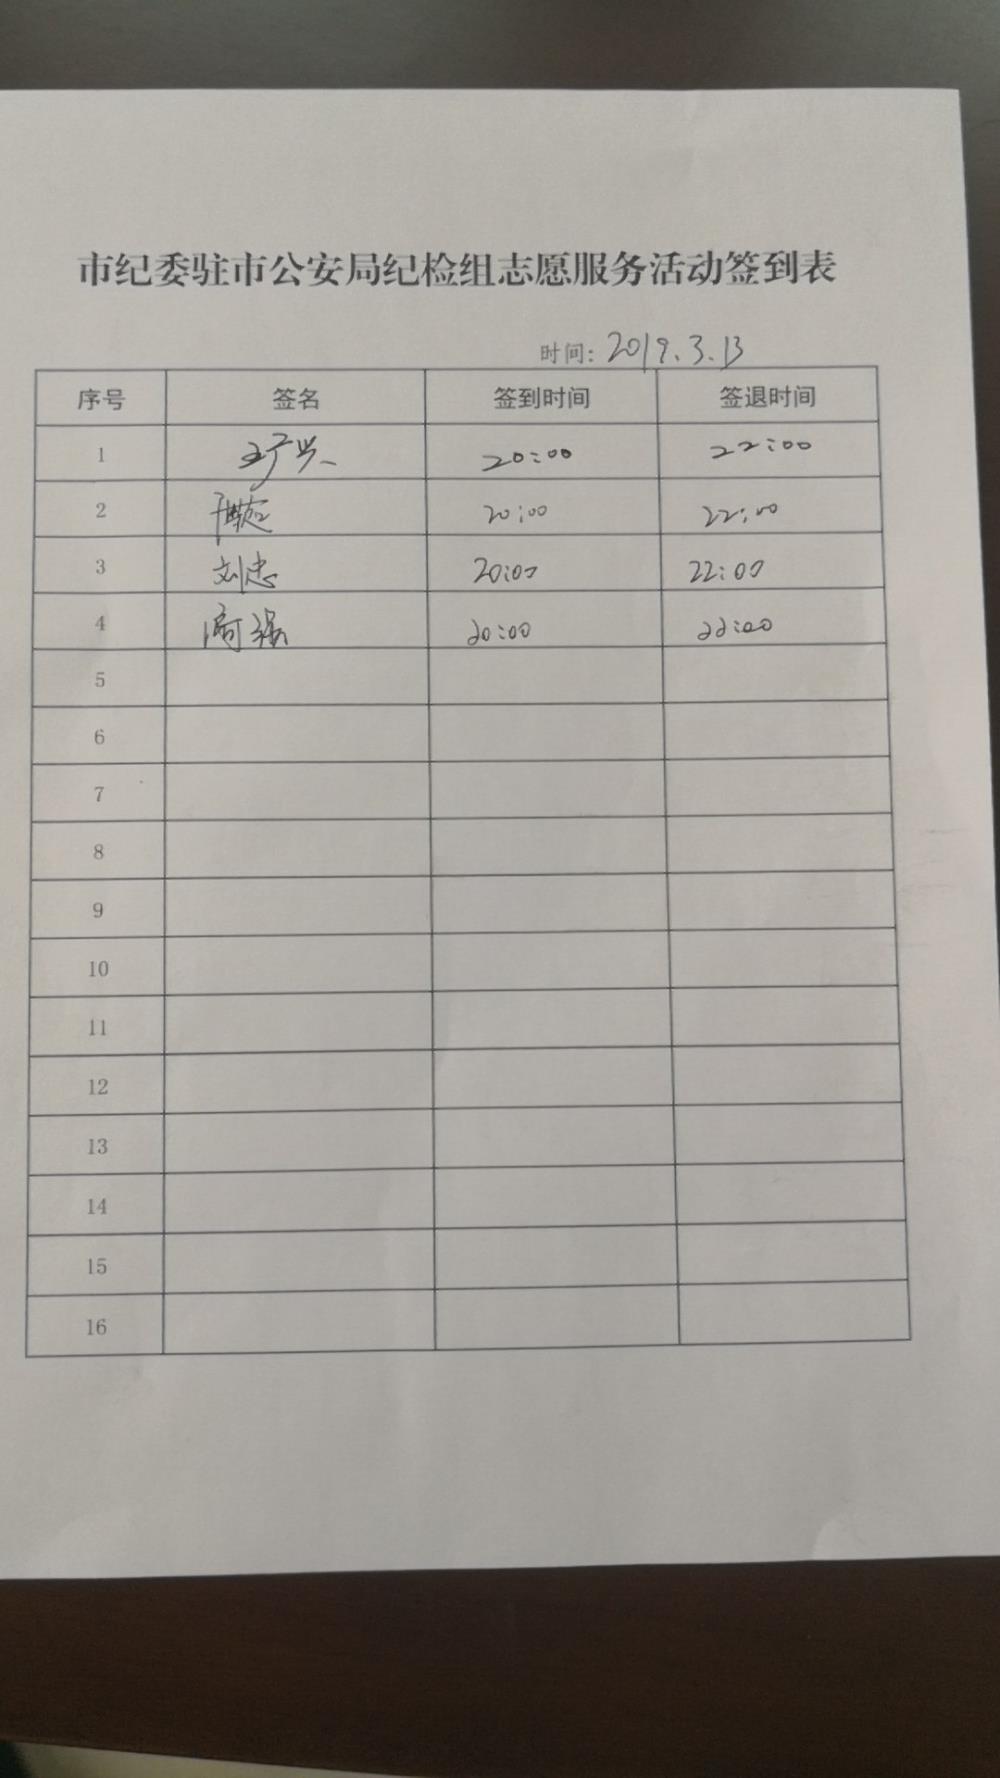 市纪委驻市公安局纪检组志愿服务活动签到表
时间：2019.3.13
序号 签名 签到时间 签退时间
1 王广兴 20:00 22:00
2 20:00 22:00
3 刘忠 20:00 22:00
4 20:00 22:00
5
6
7
8
9
10
11
12
13
14
15
16